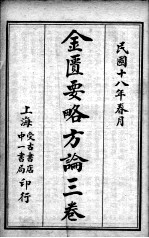 民國十八年春月
金匱要略方論三卷
上海 受古書店 中一書局 印行